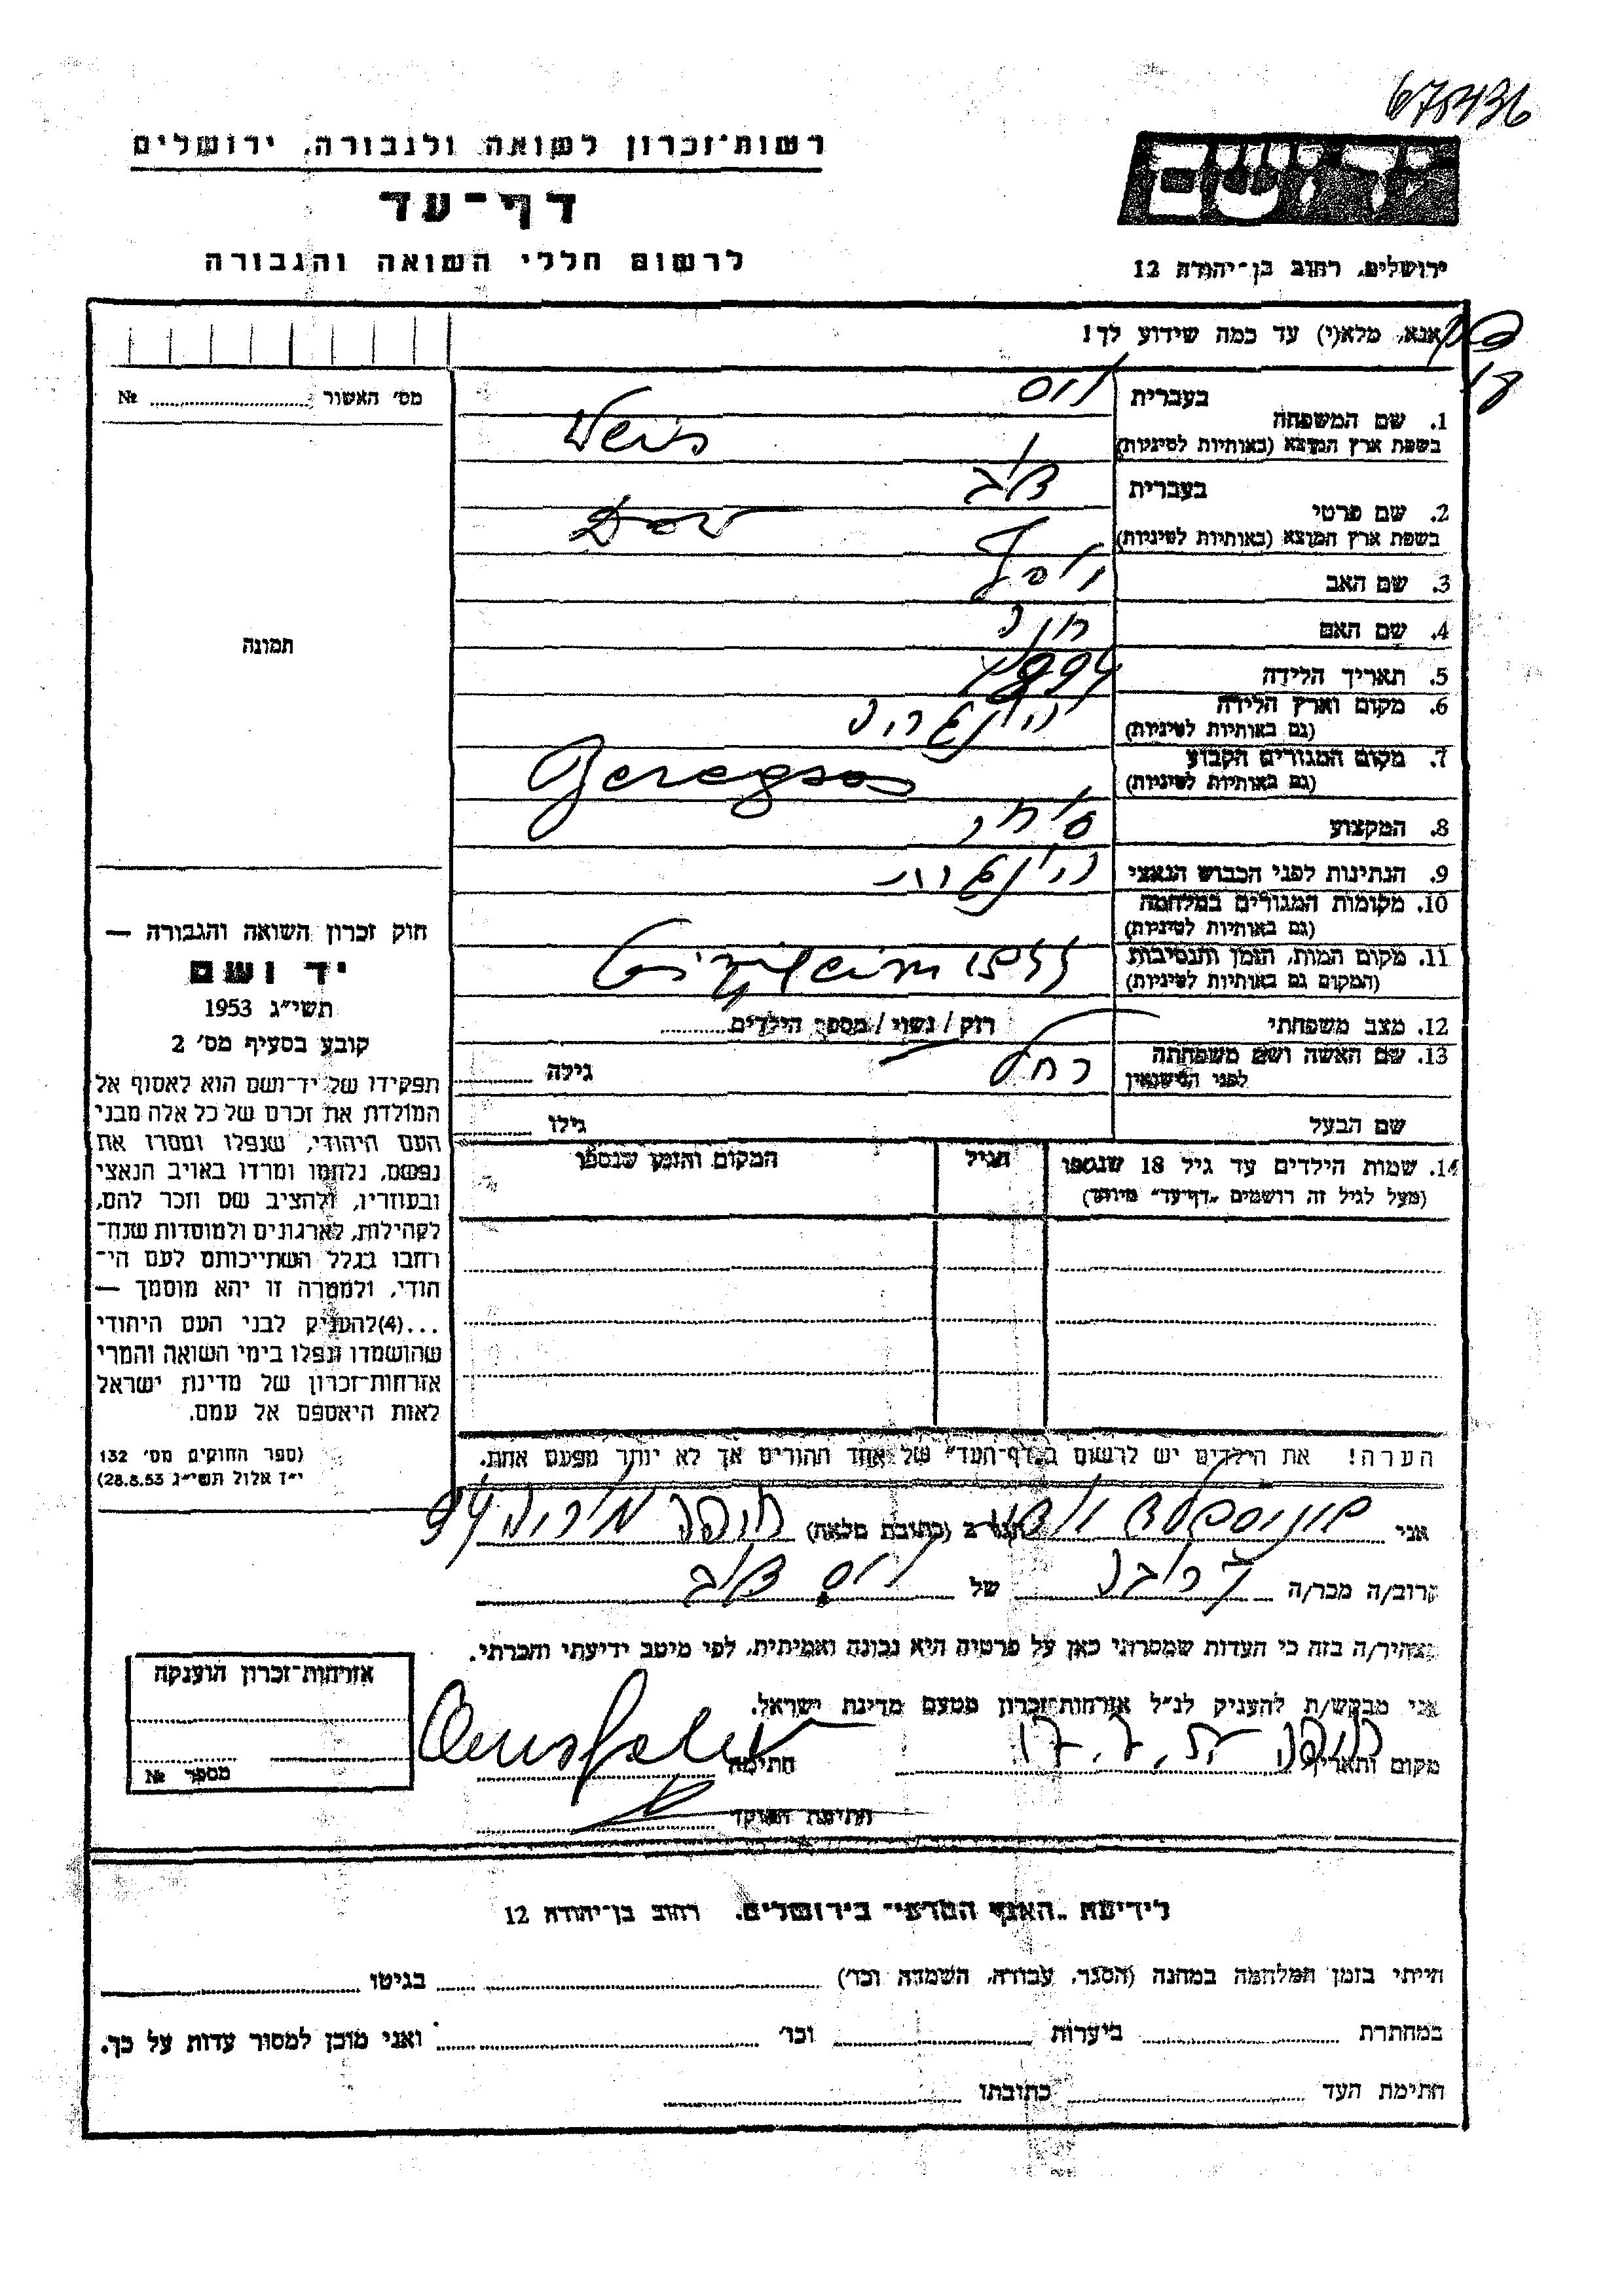 675436
רשות־זכרון לשואה ולגבורה, ירושלים
דף־עד
לרשום חללי השואה והגבורה
יד ושם
ירושלים, רחוב בן־יהודה 12
אנא, מלא(י) עד כמה שידוע לך!
מס׳ האשור № 
תמונה
1. שם המשפחה בעברית וייס
בשפת ארץ המוצא (באותיות לטיניות) Weis
2. שם פרטי בעברית דוב
בשפת ארץ המוצא (באותיות לטיניות)
3. שם האב יוסף
4. שם האם חנה
5. תאריך הלידה
6. מקום וארץ הלידה הונגריה
(גם באותיות לטיניות)
7. מקום המגורים הקבוע
(גם באותיות לטיניות)
8. המקצוע סוחר
9. הנתינות לפני הכבוש הנאצי הונגרית
10. מקומות המגורים במלחמה
(גם באותיות לטיניות)
11. מקום המות, הזמן והנסיבות
(המקום גם באותיות לטיניות)
12. מצב משפחתי רוק / נשוי / מספר הילדים
13. שם האשה ושם משפחתה רחל גילה
לפני הנישואין
שם הבעל גילו
14. שמות הילדים עד גיל 18 שנספו הגיל המקום והזמן שנספו
(מעל לגיל זה רושמים „דף־עד” מיוחד)
הערה! את הילדים יש לרשום ב„דף־העד” של אחד ההורים אך לא יותר מפעם אחת.
חוק זכרון השואה והגבורה —
יד ושם
תשי״ג 1953
קובע בסעיף מס׳ 2
תפקידו של יד־ושם הוא לאסוף אל
המולדת את זכרם של כל אלה מבני
העם היהודי, שנפלו ומסרו את
נפשם, נלחמו ומרדו באויב הנאצי
ובעוזריו, ולהציב שם וזכר להם,
לקהילות, לארגונים ולמוסדות שנח־
רבו בגלל השתייכותם לעם הי־
הודי, ולמטרה זו יהא מוסמך —
...(4)להעניק לבני העם היהודי
שהושמדו ונפלו בימי השואה והמרי
אזרחות־זכרון של מדינת ישראל
לאות היאספם אל עמם.
(ספר החוקים מס׳ 132
י״ז אלול תשי״ג 28.8.53)
אני הגר ב (כתובת מלאה) חיפה
קרוב/ה מכר/ה קרובה של וייס דוב
מצהיר/ה בזה כי העדות שמסרתי כאן על פרטיה היא נכונה ואמיתית, לפי מיטב ידיעתי והכרתי.
אני מבקש/ת להעניק לנ״ל אזרחות־זכרון מטעם מדינת ישראל.
מקום ותאריך חיפה חתימה
חתימת הפוקד
אזרחות־זכרון הוענקה
מספר №
לידיעת „האגף המדעי” בירושלים, רחוב בן־יהודה 12
הייתי בזמן המלחמה במחנה (הסגר, עבודה, השמדה וכו׳) בגיטו
במחתרת ביערות וכו׳ ואני מוכן למסור עדות על כך.
חתימת העד כתובתו